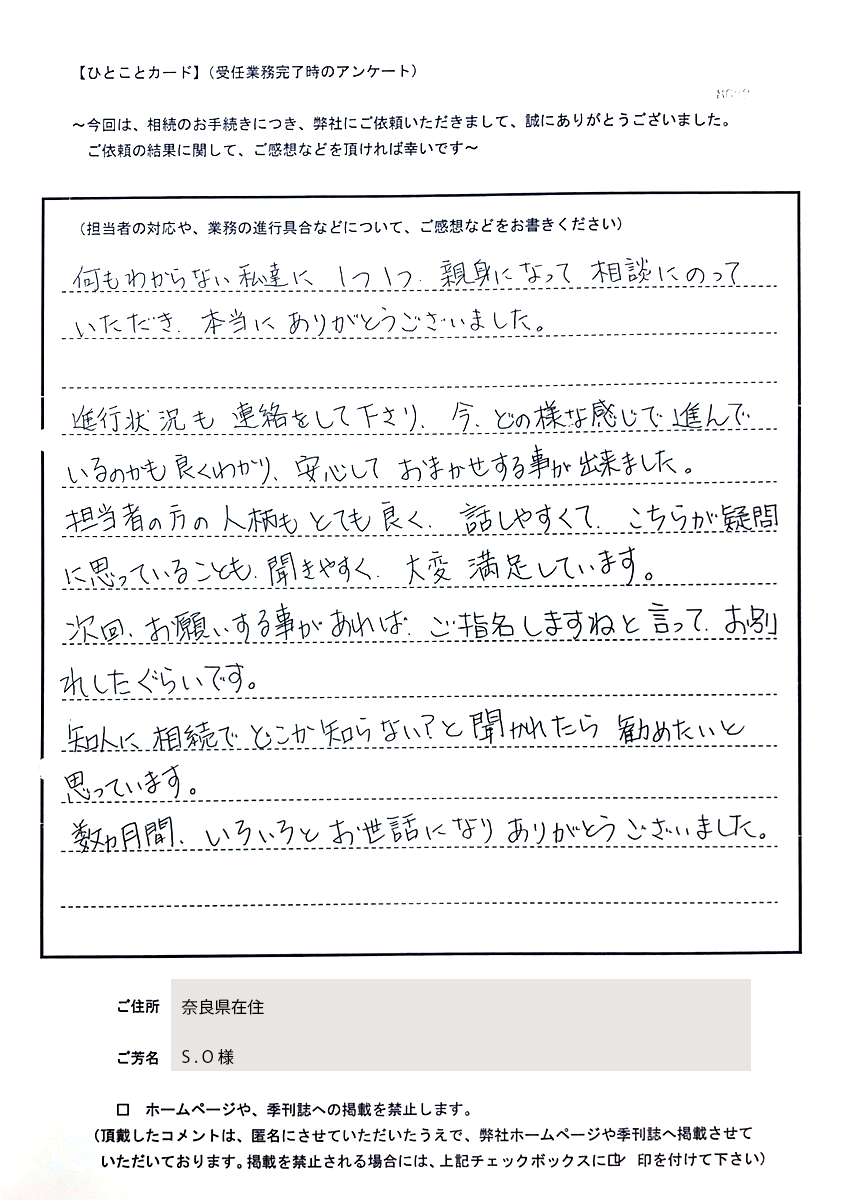 【ひとことカード】(受任業務完了時のアンケート)
～今回は、相続のお手続きにつき、弊社にご依頼いただきまして、誠にありがとうございました。
ご依頼の結果に関して、ご感想などを頂ければ幸いです～
(担当者の対応や、業務の進行具合などについて、ご感想などをお書きください)
何もわからない私達に 1つ1つ、親身になって 相談にのって
いただき、本当に ありがとうございました。
進行状況も 連絡をして下さり、今、どの様な感じで進んで
いるのかも良くわかり、安心して おまかせする事が出来ました。
担当者の方の人柄もとても良く、話しやすくて、こちらが疑問
に思っていることも、聞きやすく、大変 満足しています。
次回、お願いする事があれば、ご指名しますねと言って、お別
れしたぐらいです。
知人に 相続で どこか知らない?と聞かれたら 勧めたいと
思っています。
数ヵ月間、いろいろと お世話になり ありがとうございました。
ご住所 奈良県在住
ご芳名 S.O様
□ ホームページや、季刊誌への掲載を禁止します。
(頂戴したコメントは、匿名にさせていただいたうえで、弊社ホームページや季刊誌へ掲載させて
いただいております。掲載を禁止される場合には、上記チェックボックスに☑ 印を付けて下さい)